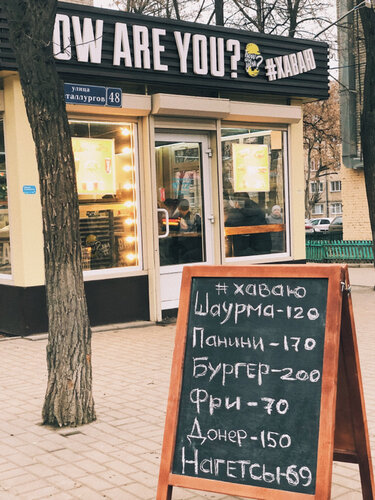 OW ARE YOU? #ХАВАЮ
улица
таллургов 48
#хаваю
Шаурма-120
Панини-170
Бургер-200
Фри-70
Донер-150
Нагетсы-69